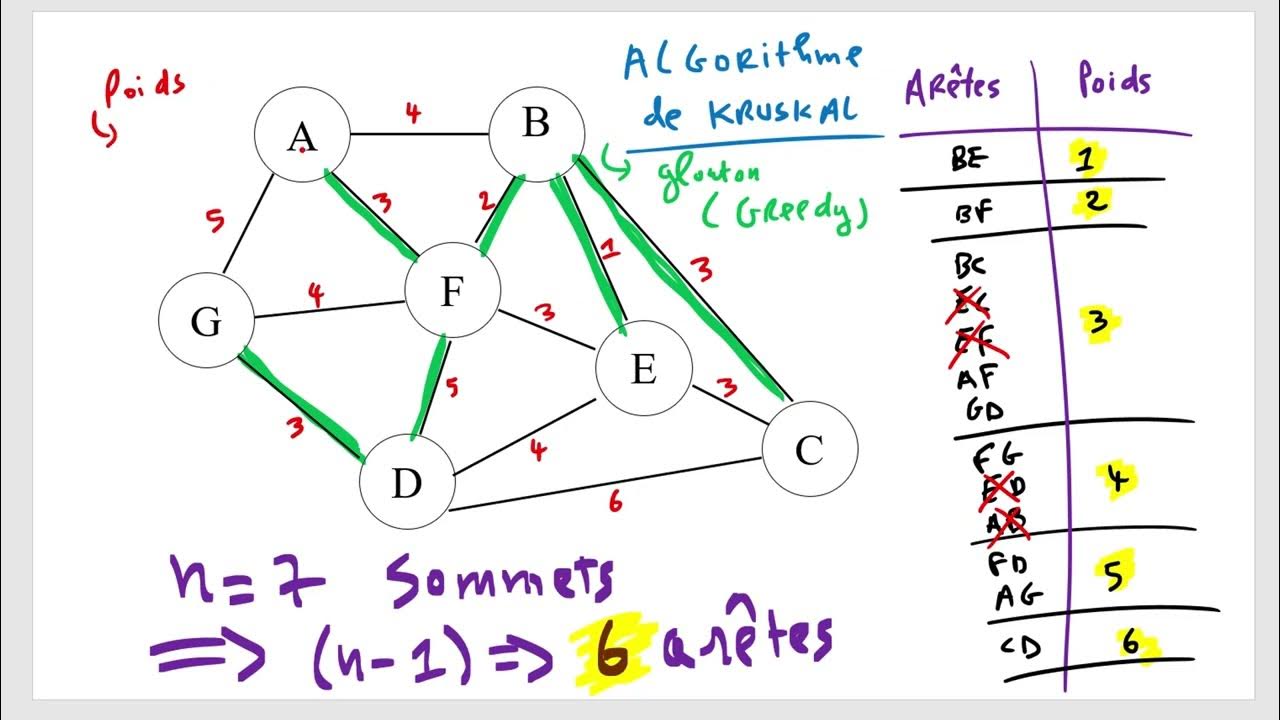 Poids
ALGORithme
de KRUSKAL
glouton
(GReedy)
A
4
B
5
3
2
1
3
G
4
F
3
E
3
3
5
D
4
C
6
n=7 Sommets
=> (n-1) => 6 arêtes
ARêtes Poids
BE 1
BF 2
BC
EC
EF 3
AF
GD
FG
ED 4
AB
FD 5
AG
CD 6